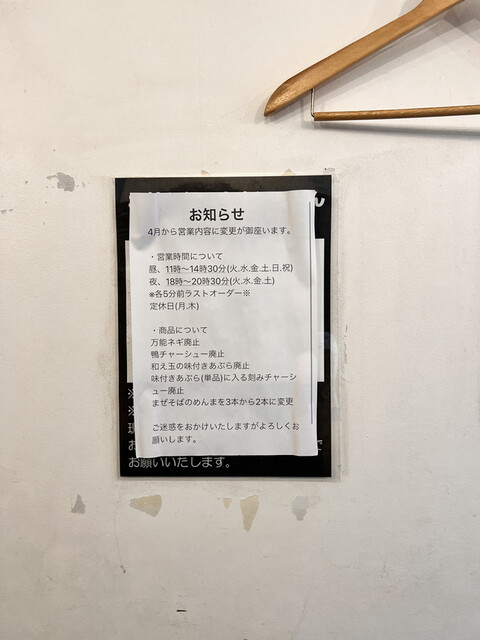 お知らせ
4月から営業内容に変更が御座います。
・営業時間について
昼、11時〜14時30分(火.水.金.土.日.祝)
夜、18時〜20時30分(火.水.金.土)
※各5分前ラストオーダー※
定休日(月.木)
・商品について
万能ネギ廃止
鴨チャーシュー廃止
和え玉の味付きあぶら廃止
味付きあぶら(単品)に入る刻みチャーシ
ュー廃止
まぜそばのめんまを3本から2本に変更
ご迷惑をおかけいたしますがよろしくお
願いします。
※
※
お
で
お願いいたします。